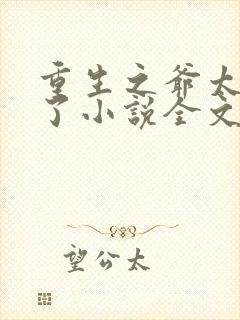 重生之爺太
了小說全文
望公太